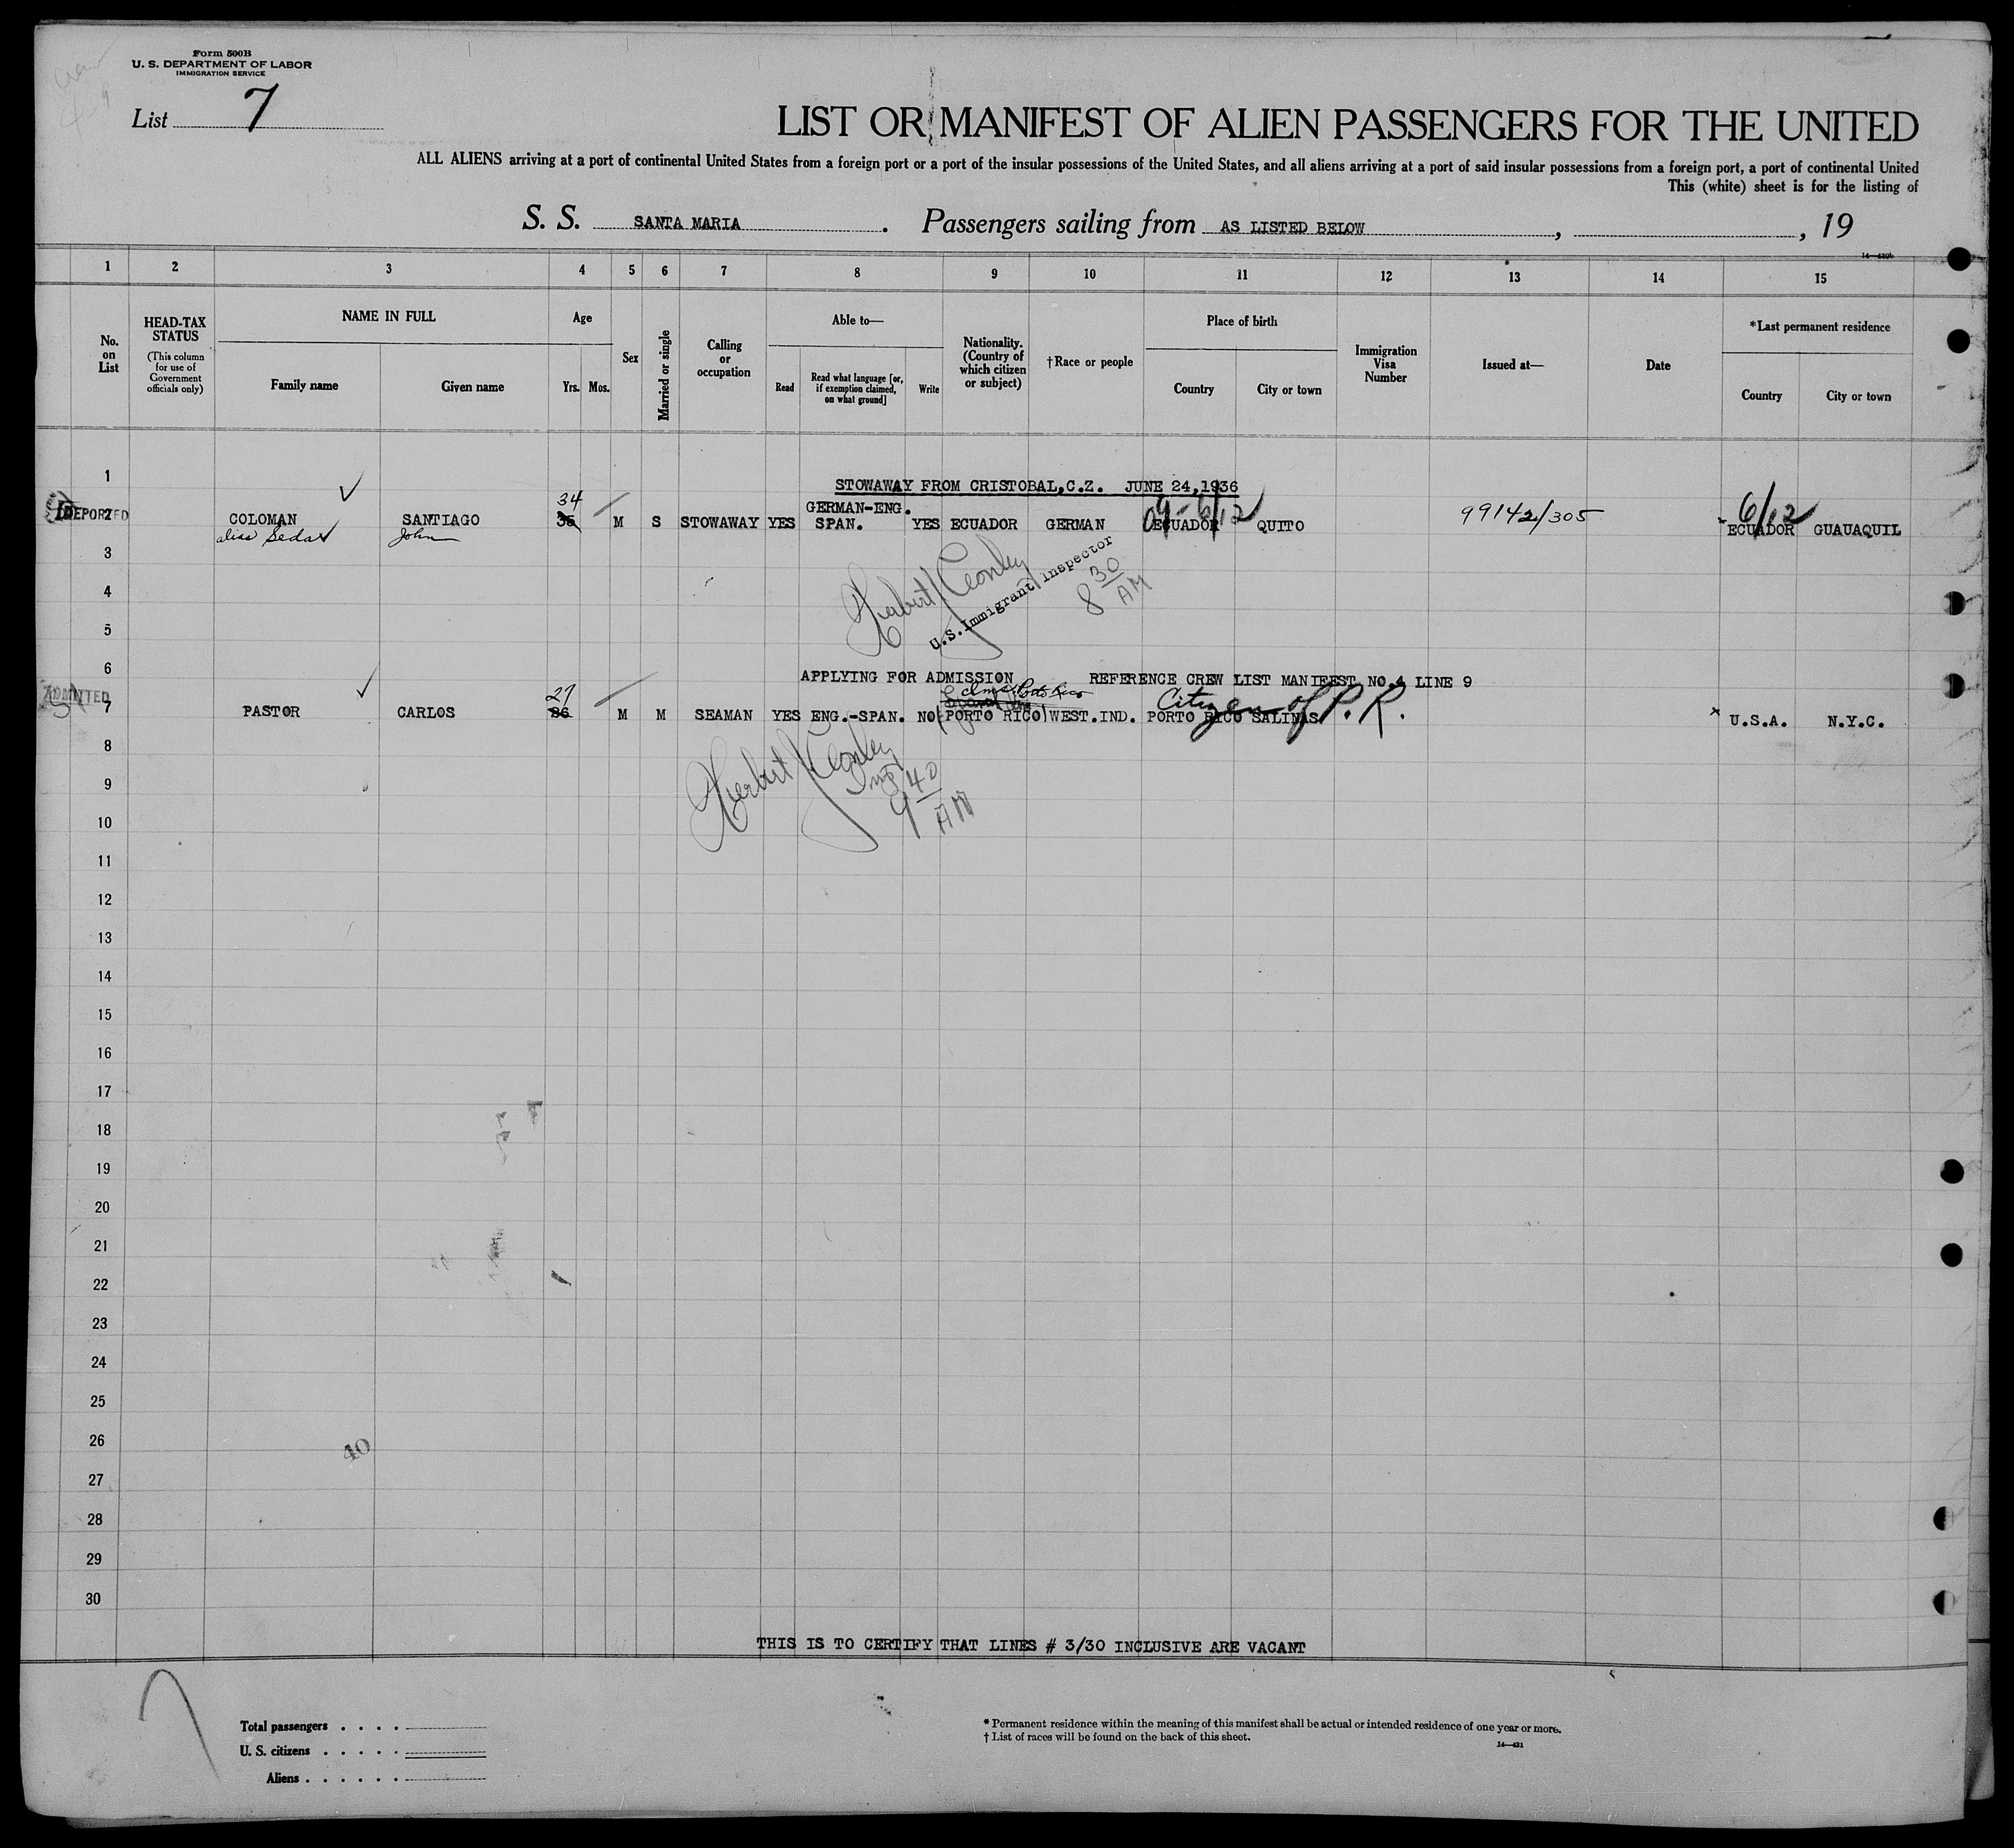 Form 500B
U. S. DEPARTMENT OF LABOR
IMMIGRATION SERVICE
List 7
LIST OR MANIFEST OF ALIEN PASSENGERS FOR THE UNITED
ALL ALIENS arriving at a port of continental United States from a foreign port or a port of the insular possessions of the United States, and all aliens arriving at a port of said insular possessions from a foreign port, a port of continental United
This (white) sheet is for the listing of
S. S. SANTA MARIA. Passengers sailing from AS LISTED BELOW, , 19
1 2 3 4 5 6 7 8 9 10 11 12 13 14 15
No. on List
HEAD-TAX STATUS (This column for use of Government officials only)
NAME IN FULL Family name Given name
Age Yrs. Mos.
Sex
Married or single
Calling or occupation
Able to— Read Read what language [or, if exemption claimed, on what ground] Write
Nationality. (Country of which citizen or subject)
†Race or people
Place of birth Country City or town
Immigration Visa Number
Issued at—
Date
*Last permanent residence Country City or town
1
STOWAWAY FROM CRISTOBAL,C.Z. JUNE 24,1936
34 GERMAN-ENG. 6/12
DEPORTED 2 COLOMAN SANTIAGO 35 M S STOWAWAY YES SPAN. YES ECUADOR GERMAN ECUADOR QUITO 99142/305 ECUADOR GUAUAQUIL
alias John
3
4
U.S. Immigrant Inspector
8 30 AM
5
6
APPLYING FOR ADMISSION REFERENCE CREW LIST MANIFEST NO.4 LINE 9
ADMITTED 27 Porto Rico Citizen of P. R.
7 PASTOR CARLOS 26 M M SEAMAN YES ENG.-SPAN. NO PORTO RICO WEST.IND. PORTO RICO SALINAS x U.S.A. N.Y.C.
8
Herbert
9
9 40 AM
10
11
12
13
14
15
16
17
18
19
20
21
22
23
24
25
26
40
27
28
29
30
THIS IS TO CERTIFY THAT LINES # 3/30 INCLUSIVE ARE VACANT
Total passengers . . . .
U. S. citizens . . . . .
Aliens . . . . . .
* Permanent residence within the meaning of this manifest shall be actual or intended residence of one year or more.
† List of races will be found on the back of this sheet.
14—431